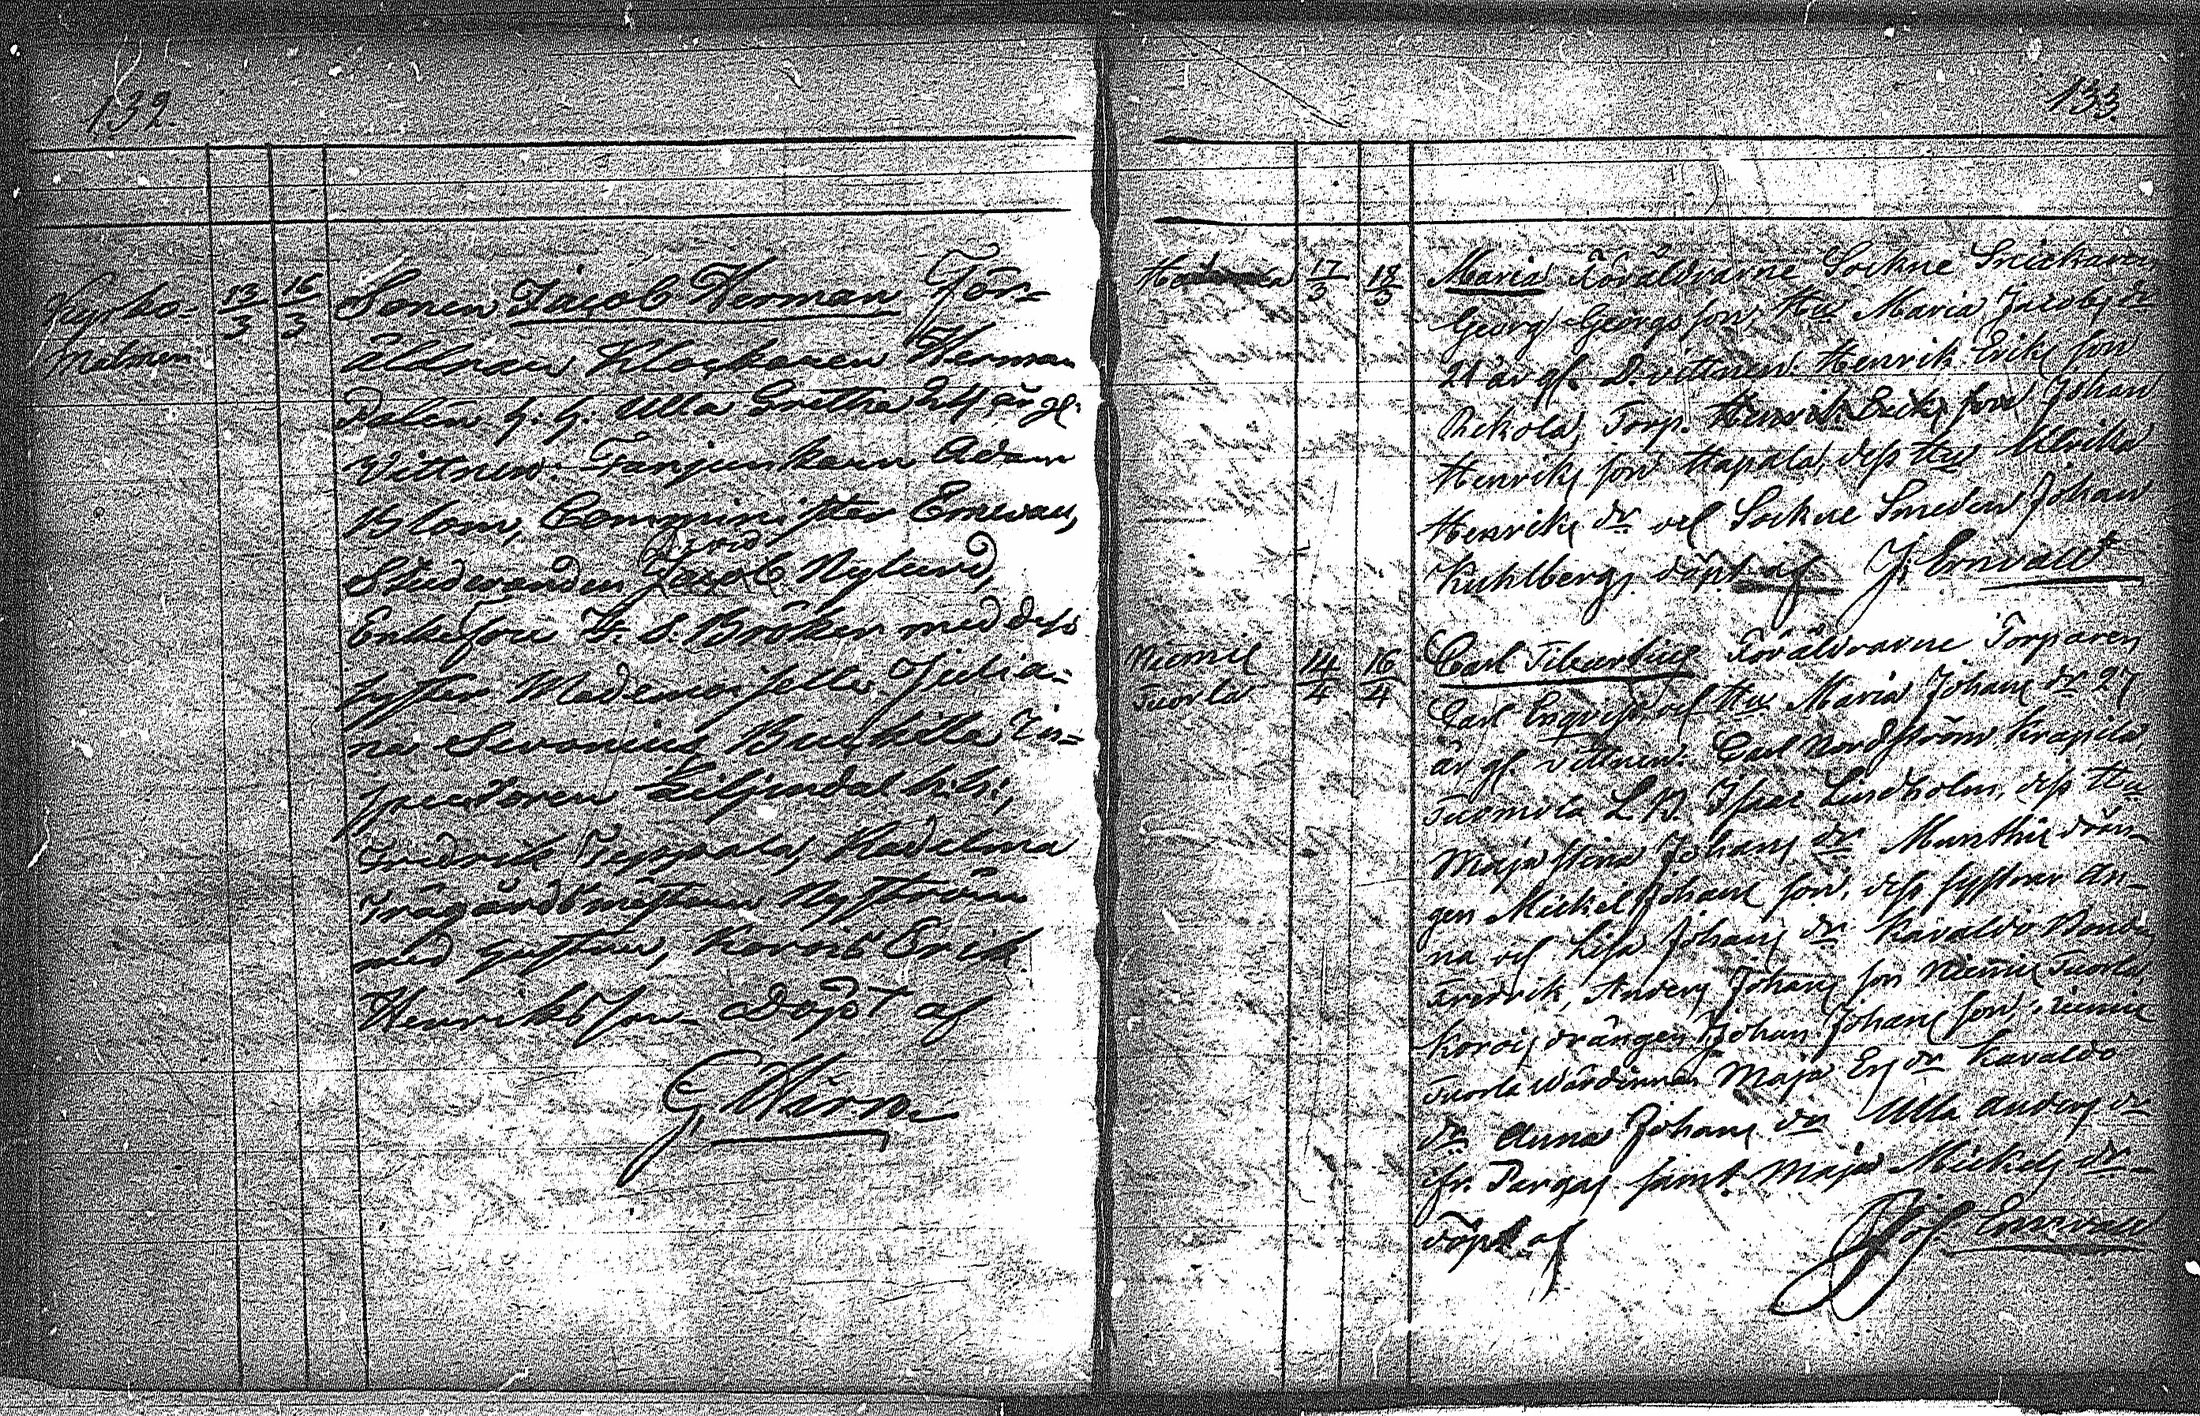 132.
Kyrko-
malmen
13/3 16/3 Sonen Jacob Herman För-
äldrar Klockaren Herman
Palén h. h. Ulla Gretha 24 år gl.
Vittnen: Fanjunkaren Adam
Blom, Comminister Ernvall,
Studeranden David Nylund,
Enkefru H. S. Bröker med dess
syster Mademoiselle Julia-
na Levonius, Buskila In-
spectoren Liljendal h. h.,
Fredrik Seppälä, Kadelma
Trägårdsmästaren Nyström
med hustru, Korois Erik
Henriksson döpt af
G Hirn
133
17/3 18/3 Maria Föräldrarne Sockne Snickaren
Georg Georgsson, Hu Maria Jacobs dr
21 år gl. D. vittnen: Henrik Eriks son
Rekola, Torp. Johan
Henriks son Hapala, dess Hu Ulrika
Henriks dr och Sockne Smeden Johan
Kuhlberg, döpt af J. Ernvall
Niemis
Tuorla
14/4 16/4 Carl Tiburtius Föräldrarne Torparen
Carl Enqvist och Hu Maria Johans dr 27
år gl. vittnen: Carl Nordström Krapila,
Tuomola L. B. Isaac Lindholm, dess Hu
Maja Stina Johans dr Munthis drän-
gen Mickel Johans son, dess systrar An-
na och Lisa Johans dr Kavaldo Bonden
Fredrik, Anders Johans son Niemis Tuorla
Korois drängen Johan Johans son, Niemis
Tuorla Wärdinnan Maja Ers dr Kavaldo
dr Anna Johans dr Ulla Anders dr
ifr. Pargas samt Maja Mickels dr
döpt af Joh. Ernvall